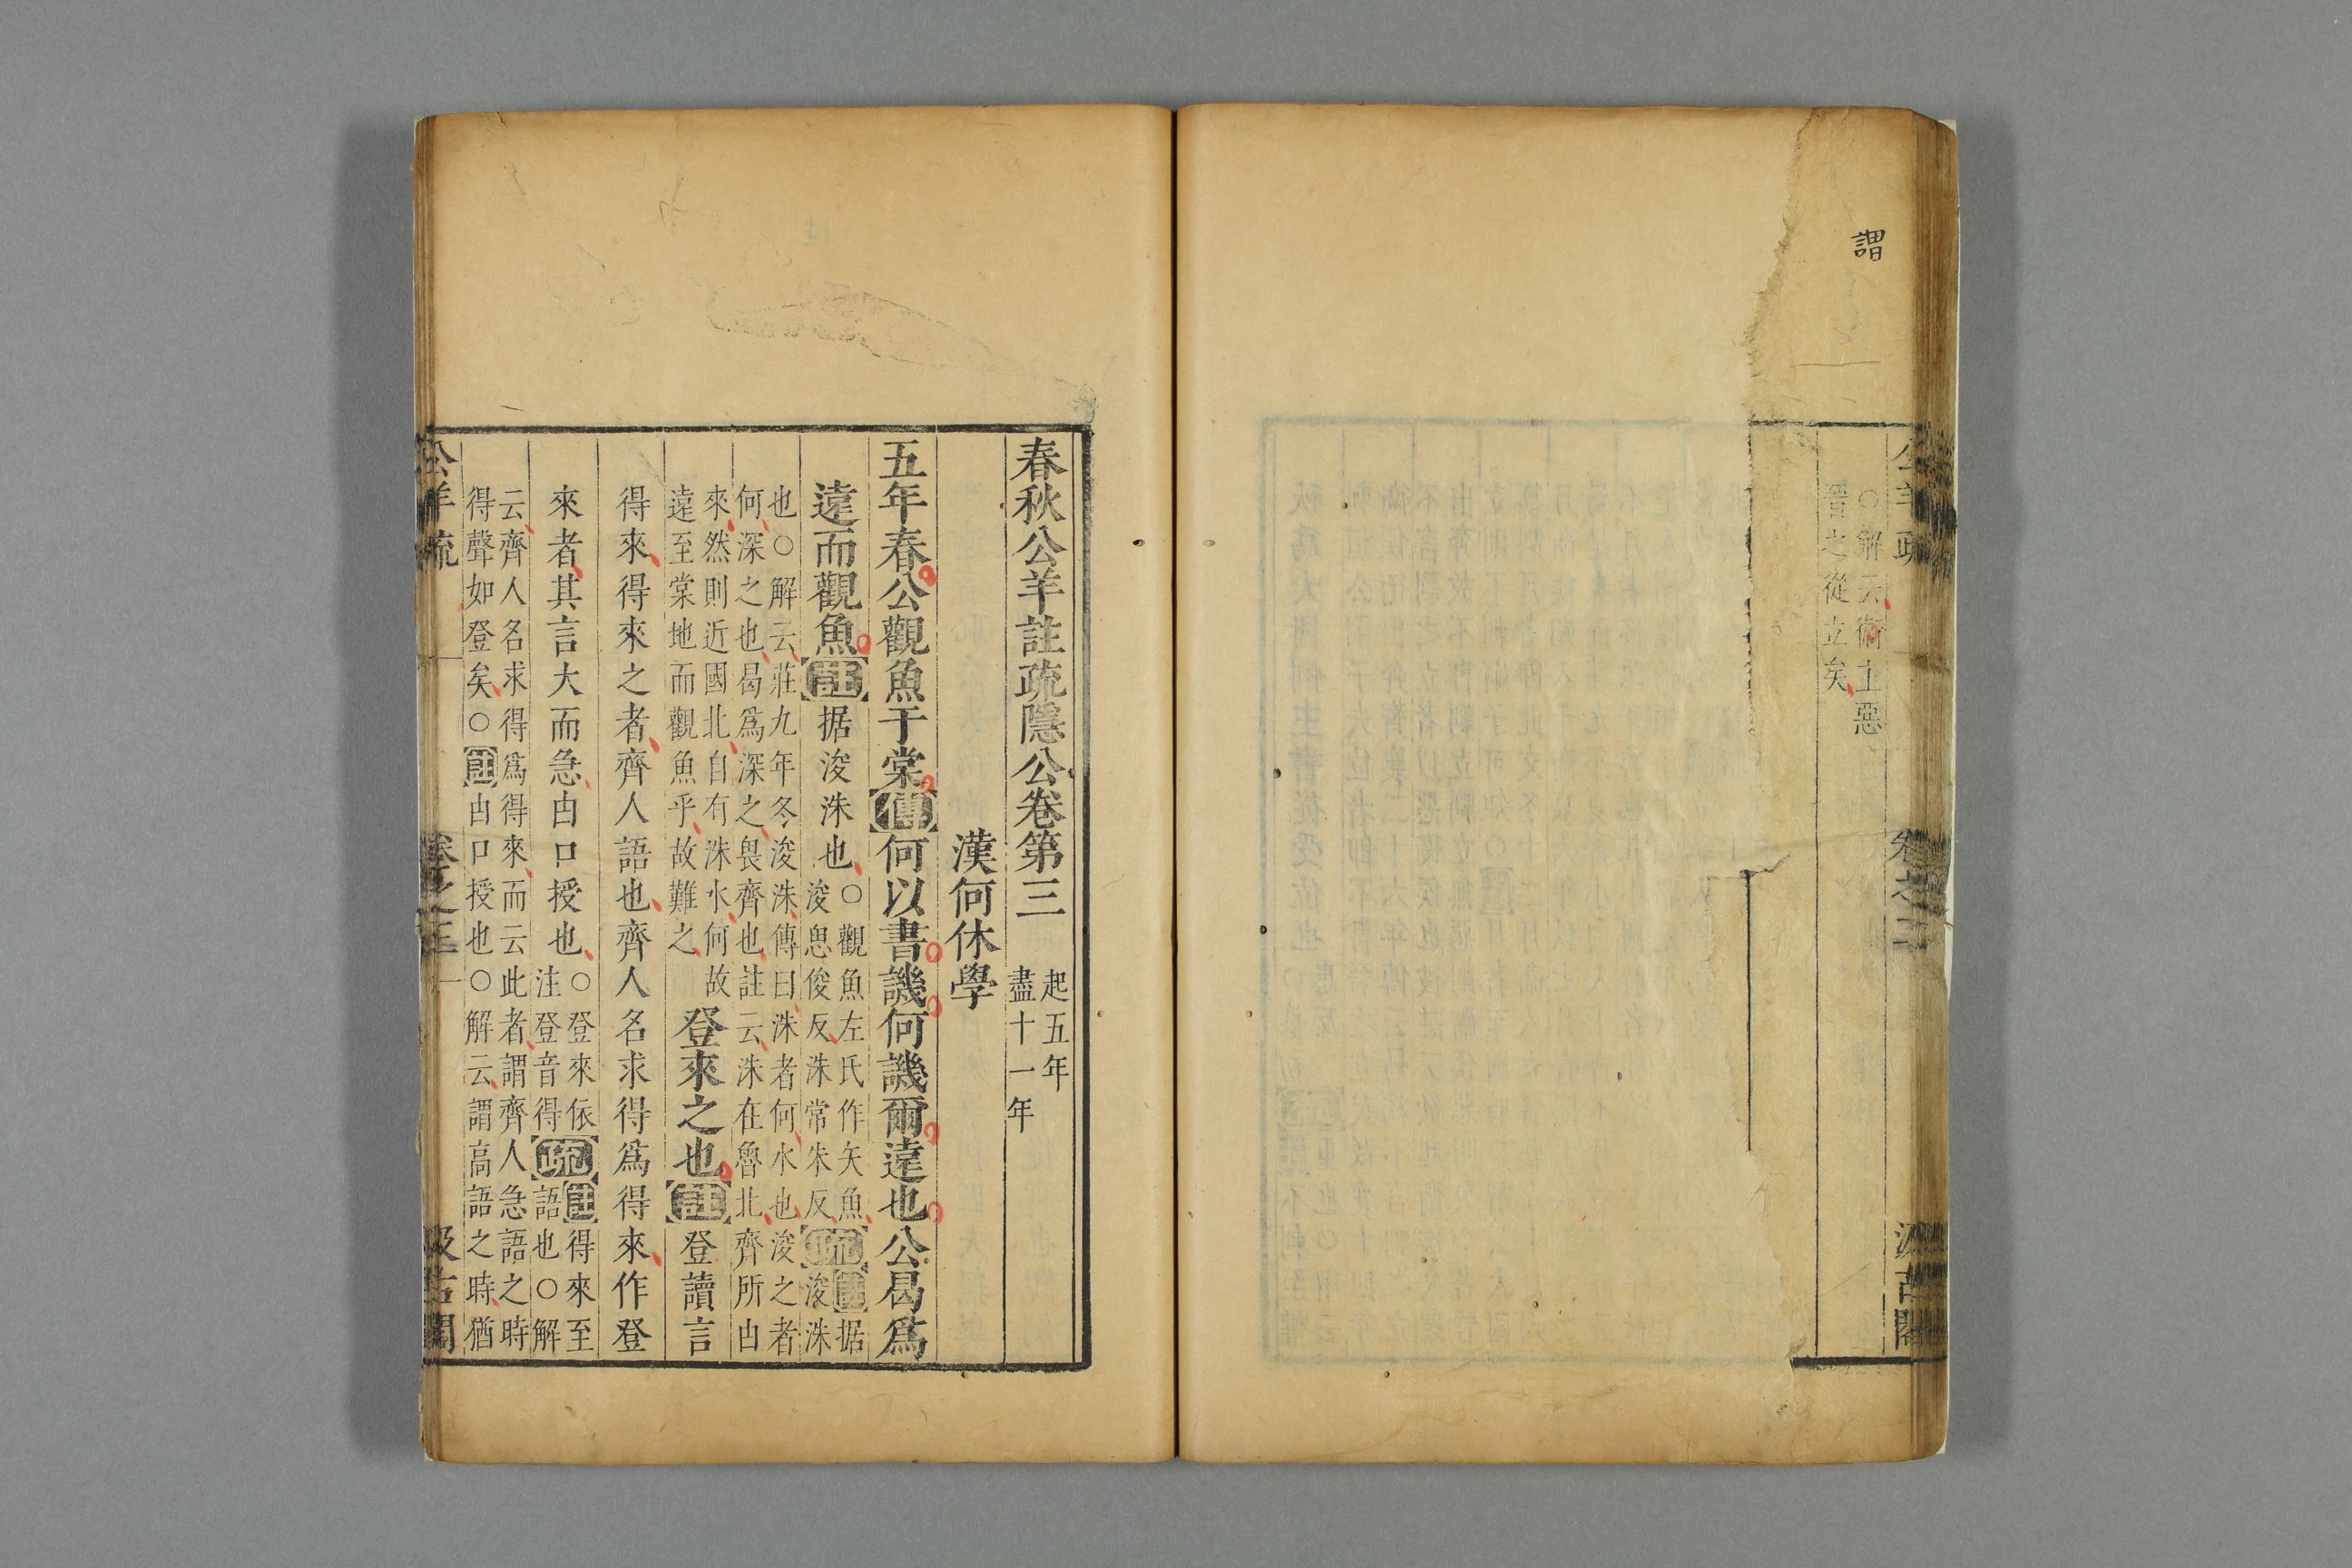 謂
公羊疏 卷之二 汲古閣
○解云衞上惡
晉之從立矣
春秋公羊註疏隱公卷第三 起五年
盡十一年
漢何休學
五年春公觀魚于棠傳何以書譏何譏爾遠也公曷爲
遠而觀魚註据浚洙也 ○觀魚左氏作矢魚
浚思俊反洙常朱反 疏 註据
浚洙
也○解云莊九年冬浚洙傳曰洙者何水也浚之者
何深之也曷爲深之畏齊也註云洙在魯北齊所由
來然則近國北自有洙水何故
遠至棠地而觀魚乎故難之
登來之也註登讀言
得來得來之者齊人語也齊人名求得爲得來作登
來者其言大而急由口授也 ○登來依
注登音得 疏 註得來至
語也○解
云齊人名求得爲得來而云此者謂齊人急語之時
得聲如登矣○註由口授也○解云謂高語之時猶
公羊疏 卷之三 一 汲古閣